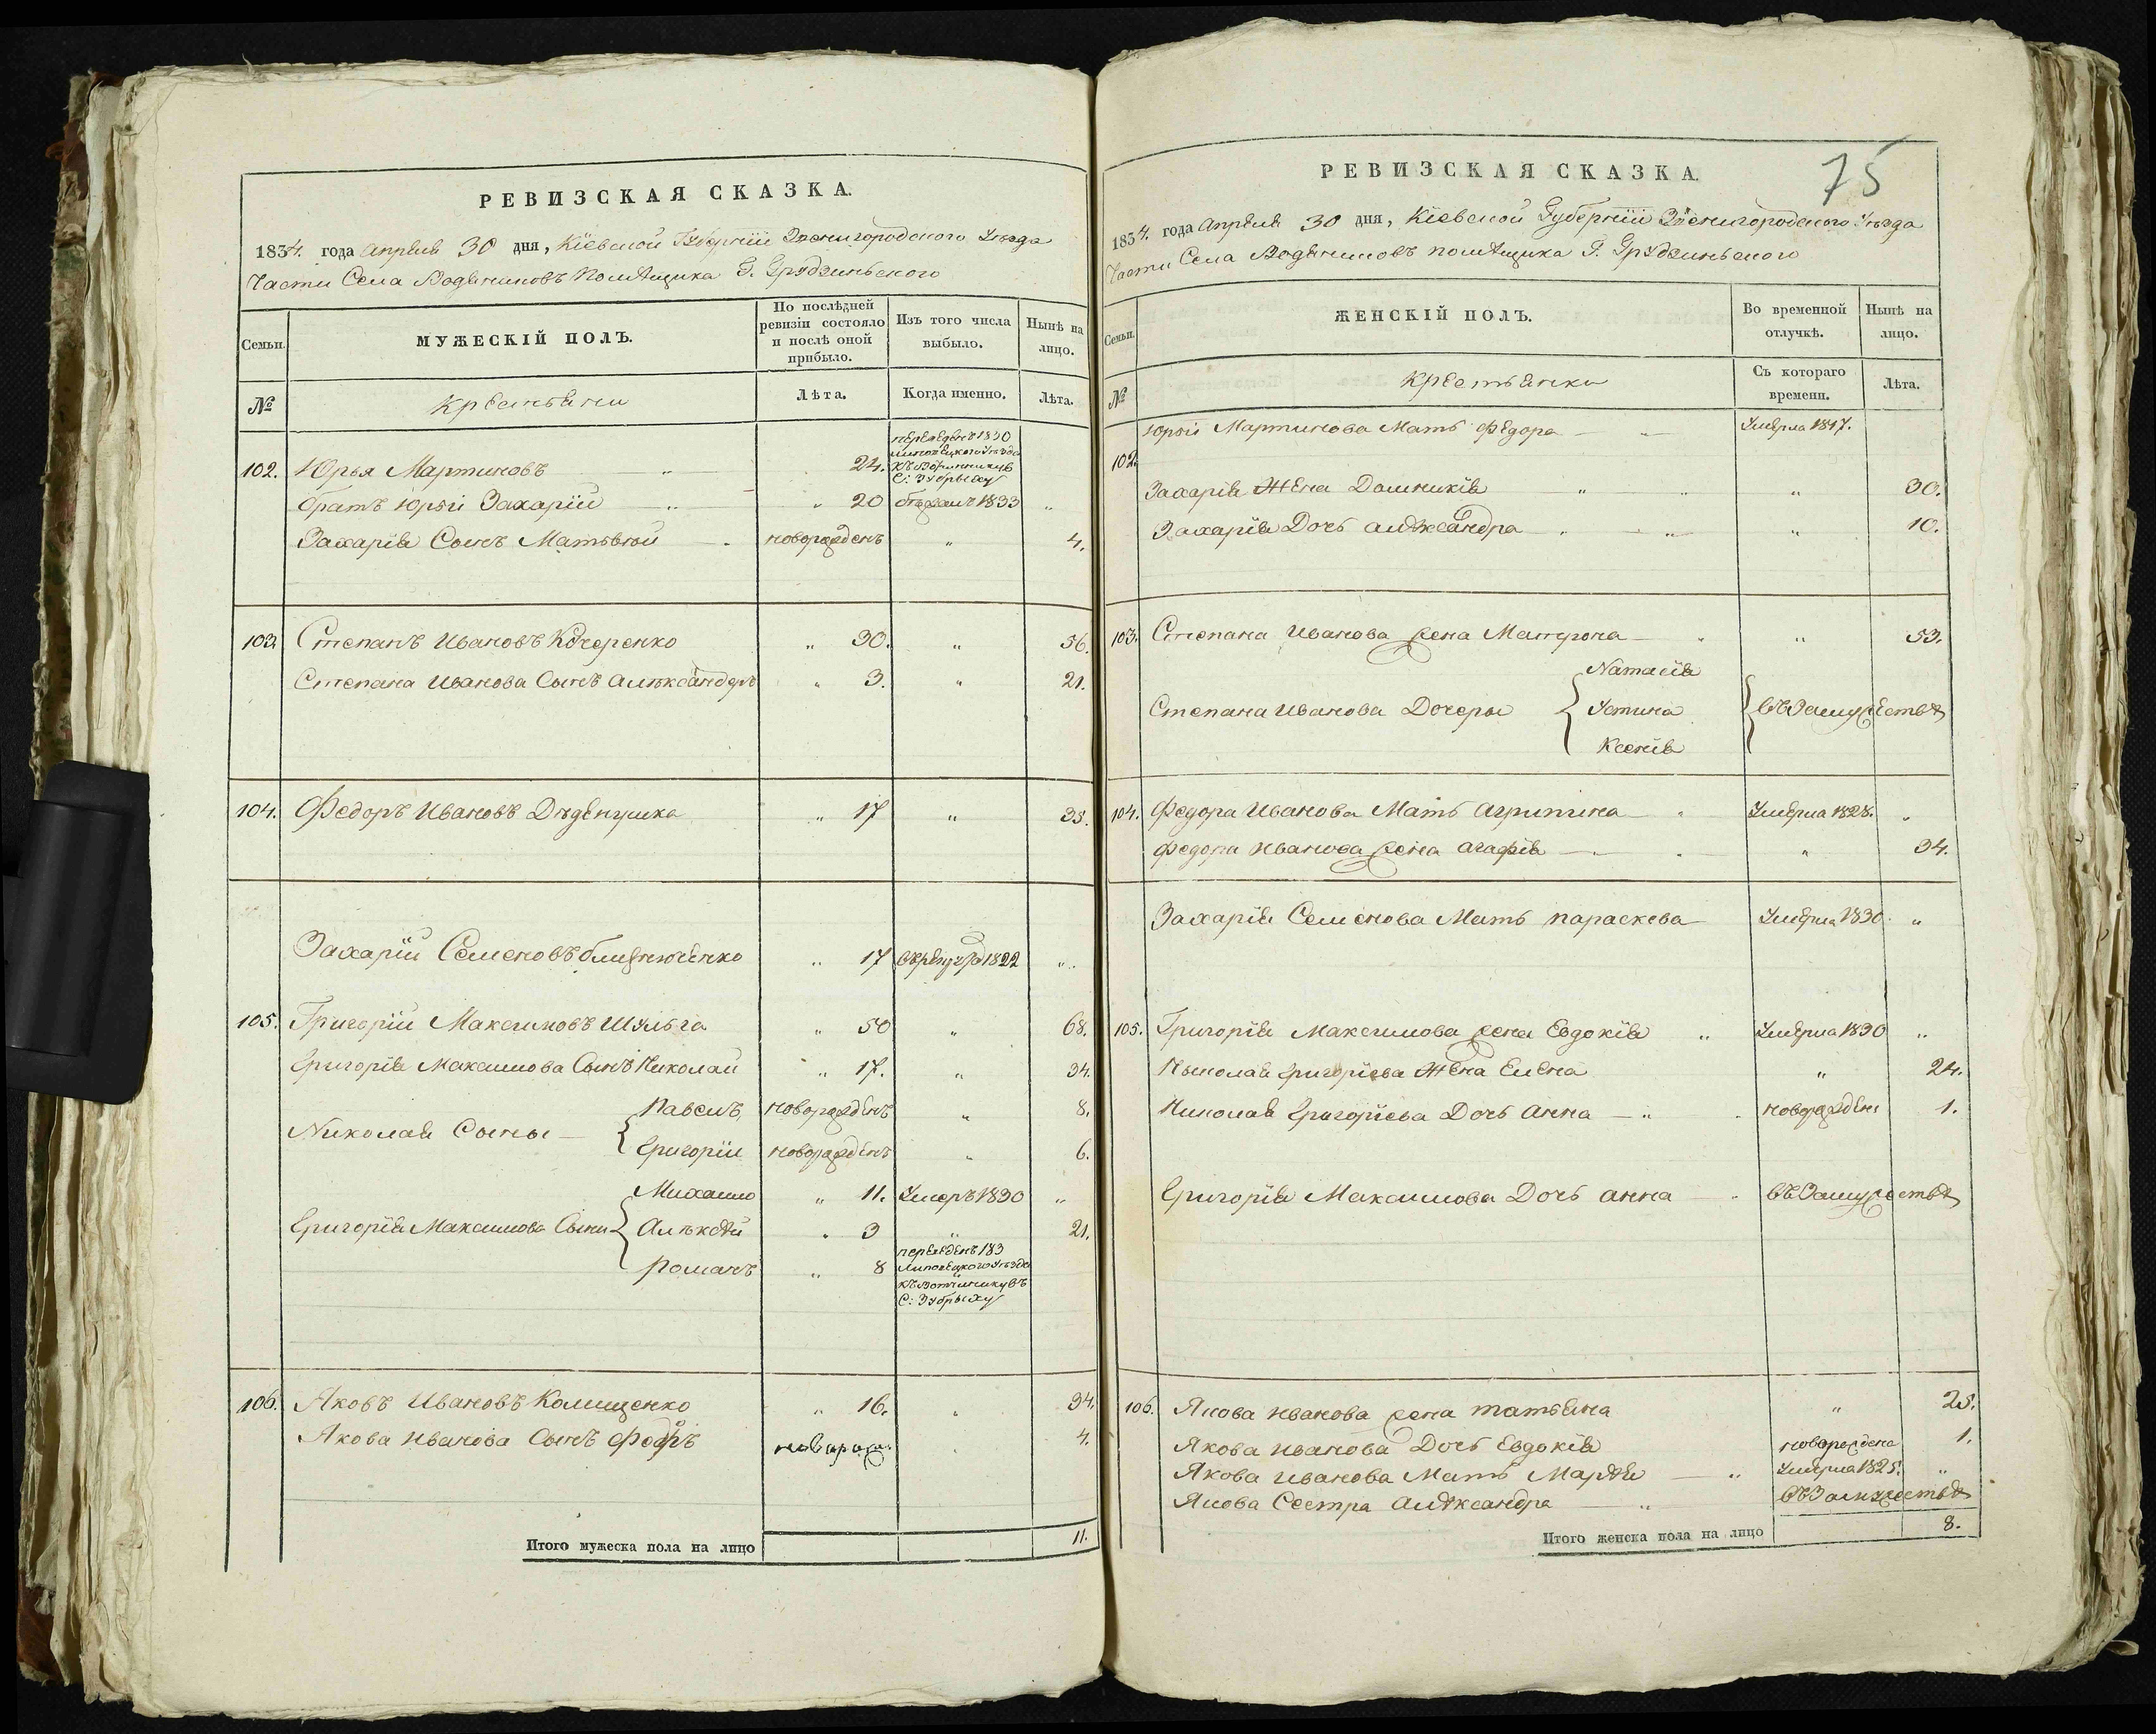 РЕВИЗСКАЯ СКАЗКА.
1834. года Апреля 30 дня, Кіевской Губерніи Звенигородского Уезда
Части Села Водяниковъ Помѣщика Г. Грудзиньского
Семьи.
МУЖЕСКІЙ ПОЛЪ.
По послѣдней ревизіи состояло и послѣ оной прибыло.
Изъ того числа выбыло.
Нынѣ на лицо.
№
Крестьяни
Лѣта.
Когда именно.
Лѣта.
переведенъ 1830
липовецкого Уезда
С: Зубрыху
102. Юрья Мартиновъ „ 24.
братъ Юрьи Захарій „ „ 20 1833 „
Захарія Сынъ Матьвѣй новорожденъ „ 4.
103. Степанъ Ивановъ Кочеренко „ 30. „ 56.
Степана Иванова Сынъ Алѣксандръ „ 3. „ 21.
104. Федоръ Ивановъ „ 17 „ 35.
Захарій Семеновъ близнюченко „ 17 врекруты 1822 „
105. Григорій Максимовъ Шульга „ 50 „ 68.
Григорія Максимова Сынъ Николай „ 17. „ 34.
Николая Сыны { Павелъ новорожденъ „ 8.
Григорій новорожденъ „ 6.
Григорія Максимова Сыни { Михайло „ 11. Умеръ 1830 „
Алѣксѣй „ 3 „ 21.
Романъ „ 8 переведенъ 183
Липовецкого Уезда
къ вотчиннику въ
С: Зубрыху
106. Яковъ Ивановъ Комищенко „ 16. „ 34.
Якова Иванова Сынъ Федоръ новорож. „ 4.
Итого мужеска пола на лицо 11.
75
РЕВИЗСКАЯ СКАЗКА.
1834. года Апреля 30 дня, Кіевской Губерніи Звенигородского Уезда
Части Села Водяниковъ помѣщика Г. Грудзиньского
Семьи.
ЖЕНСКІЙ ПОЛЪ.
Во временной отлучкѣ.
Нынѣ на лицо.
№
Крестьянки
Съ котораго времени.
Лѣта.
102. Юрьи Мартинова Мать Федора „ Умерла 1817.
Захарія Жена Домникія „ „ „ 30.
Захарія Дочь Алѣксандра „ „ „ 10.
103. Степана Иванова жена Матрона „ „ 53.
Степана Иванова Дочеры { Наталія
Устина } въ Замужествѣ
Ксенія
104. Федора Иванова Мать Агрипина „ Умерла 1828. „
Федора Иванова жена Агафія „ „ „ 34.
Захарія Семенова Мать Параскева Умерла 1830 „
105. Григорія Максимова жена Евдокія „ Умерла 1830 „
Николая Григоріева Жена Елена „ 24.
Николая Григоріева Дочь Анна „ „ новорожден 1.
Григорія Максимова Дочь Анна „ въ Замужествѣ
106. Якова Иванова жена татьяна „ 25.
Якова Иванова Дочь Евдокія новорождена 1.
Якова Иванова Мать Марѳа „ Умерла 1825. „
Якова Сестра Алѣксандра „ въ Замужествѣ
Итого женска пола на лицо 8.